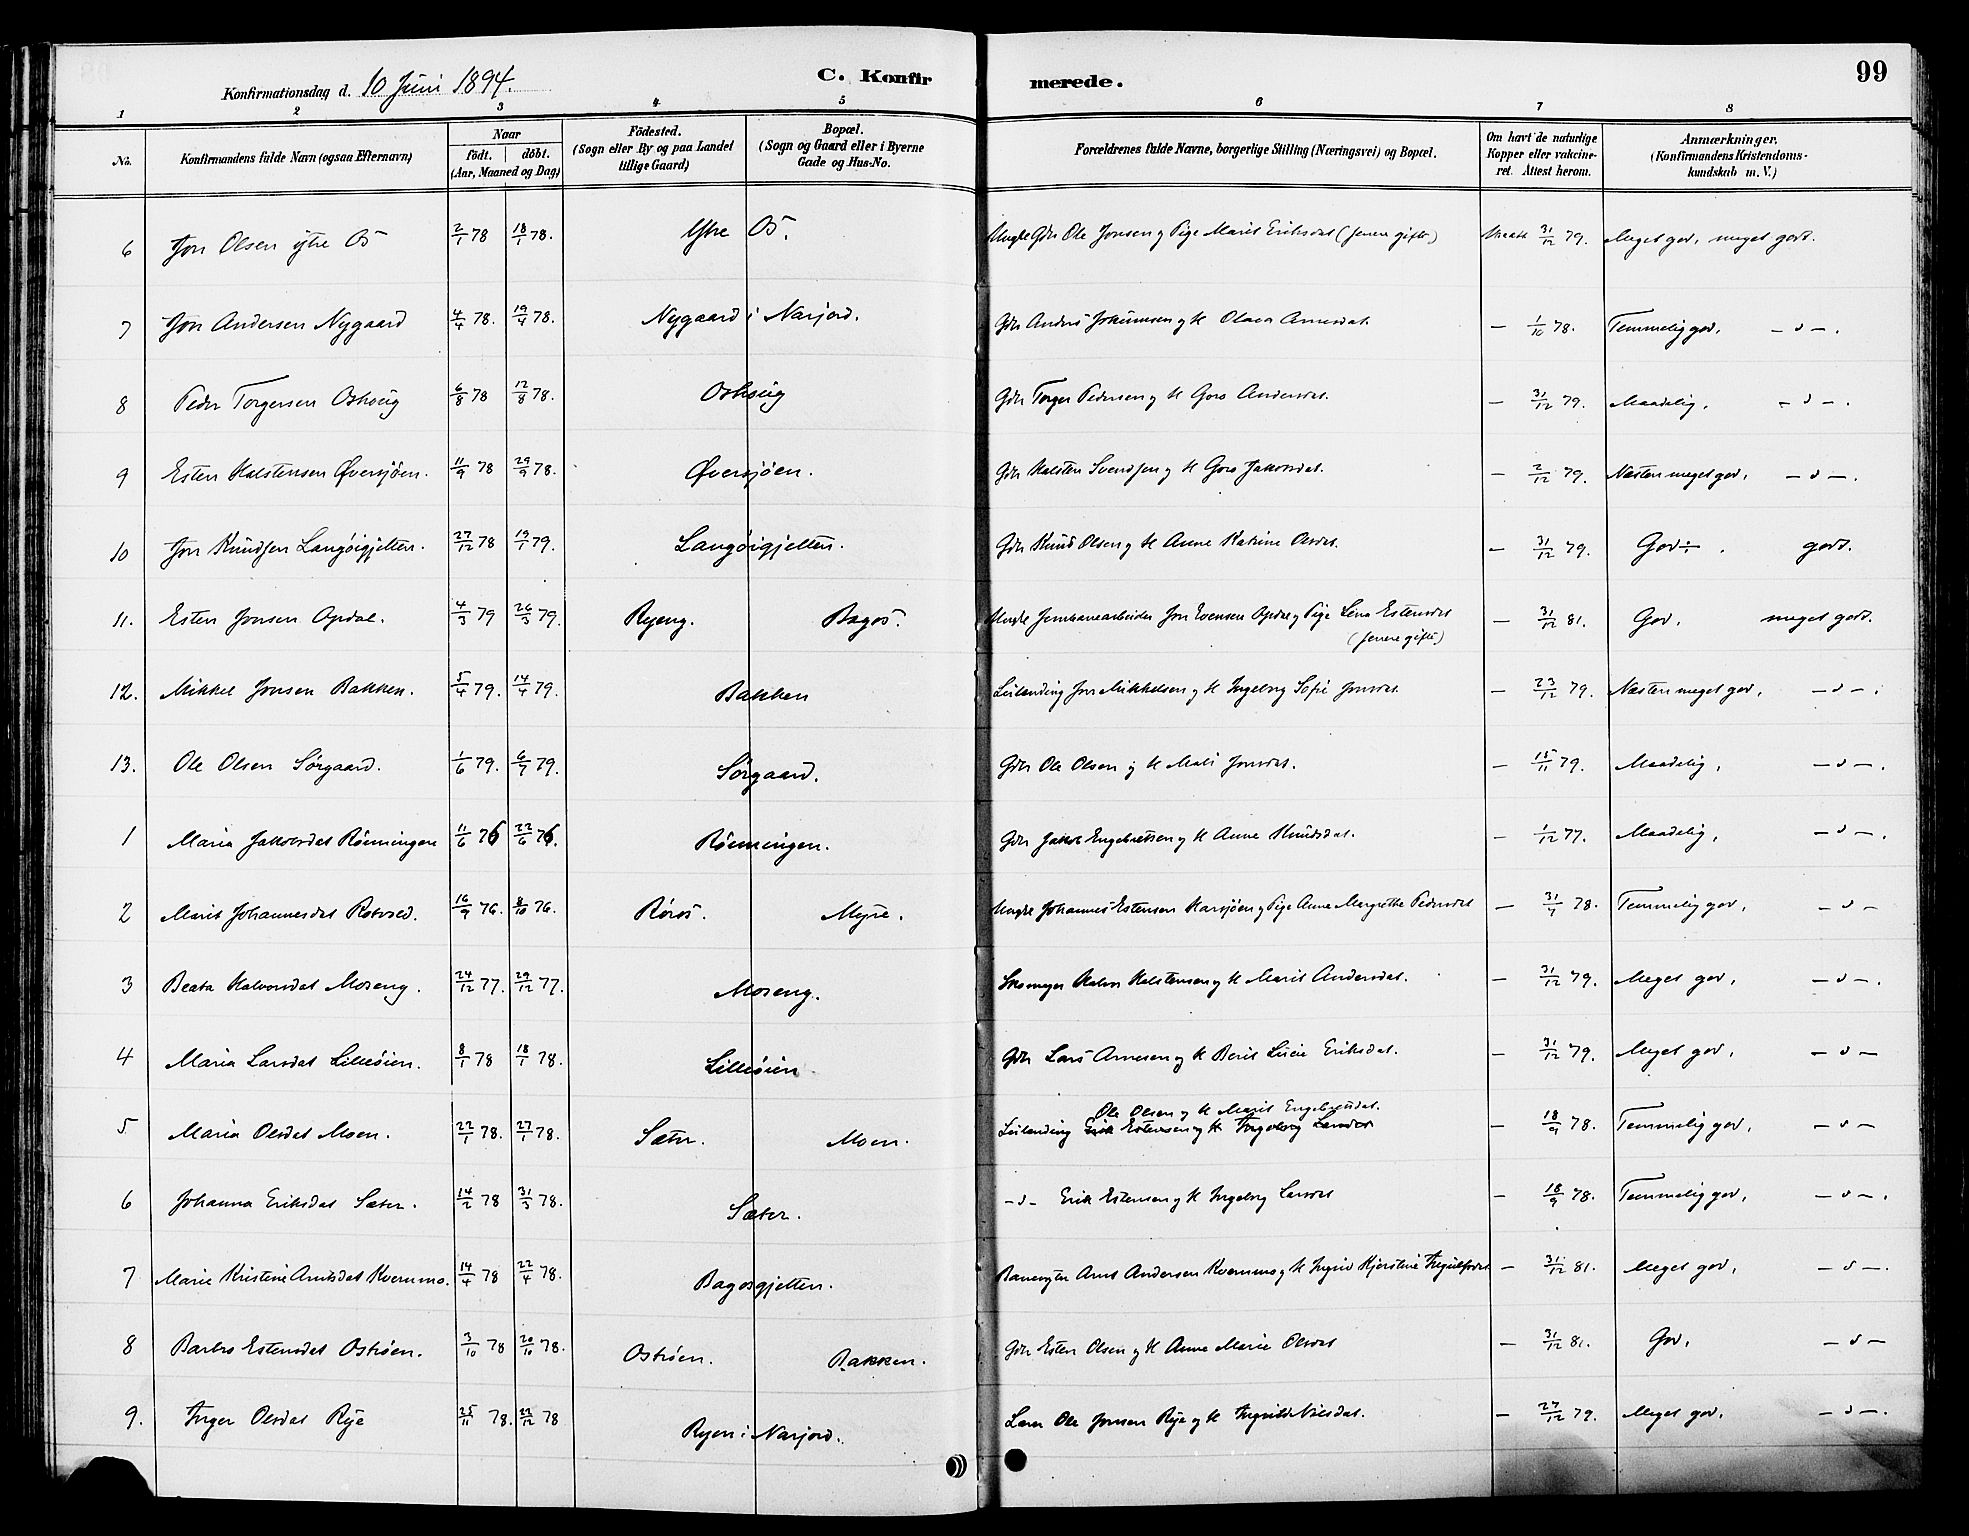 Konfirmationsdag d. 10 Juni 1894. C. Konfirmerede. 99
1 2 3 4 5 6 7 8
No. Konfirmandens fulde Navn (ogsaa Efternavn) Naar født. døbt. (Aar, Maaned og Dag) Födested. (Sogn eller By og paa Landet tillige Gaard) Bopæl. (Sogn og Gaard eller i Byerne Gade og Hus-No. Forældrenes fulde Navne, borgerlige Stilling (Næringsvei) og Bopæl. Om havt de naturlige Kopper eller vakcineret. Attest herom. Anmærkninger. (Konfirmandens Kristendomskundskab m. V.)
6 Jon Olsen ytre Os 2/1 78 18/1 78. Ytre Os. Ungkr Gdr Ole Jonsen og Pige Marit Eriksdat (senere gifte) 31/12 79. Meget god, meget godt.
7 Jon Andersen Nygaard 4/4 78. 19/4 78. Nygaard i Narjord. Gdr Anders Johannsen og H Olava Arnesdat. — 1/10 78. Temmelig god, — d —.
8 Peder Torgersen Oshoug 6/8 78 12/8 78. Oshoug Gdr Torger Pedersen og H Goro Andersdat. — 31/12 79. Maadelig, — d —.
9 Esten Halstensen Øversjøen. 11/9 78 29/9 78. Øversjøen. Gdr Halsten Svendsen og H Goro Jakobsdat. — 2/12 79. Næsten meget god, — d —.
10 Jon Knudsen Langøigjelten. 27/12 78 19/1 79. Langøigjelten. Gdr Knud Olsen og H Anne Katrine Olsdat. — 31/12 79. God ÷. godt.
11. Esten Jonsen Opdal. 4/3 79 26/3 79. Ryeng. Bagos. Ungkr Jernbanearbeider Jon Evensen Opdal og Pige Lena Estensdat (senere gifte) — 31/12 81. God, meget godt.
12. Mikkel Jonsen Bakken. 5/4 79. 14/4 79. Bakken Leilending Jon Mikkelsen og H Ingeborg Sofie Jonsdat. — 23/12 79. Næsten meget god, — d —.
13. Ole Olsen Sørgaard. 1/6 79. 6/7 79. Sørgaard. Gdr Ole Olsen og H Mali Jonsdat. — 15/11 79. Maadelig, — d —.
1 Maria Jakobsdat Rønningen 11/6 76 22/6 76. Rønningen. Gdr Jakob Engebretsen og H Anne Knudsdat. — 1/12 77. Maadelig, — d —.
2 Marit Johannesdat Rotvold. 16/9 76. 8/10 76. Røros. Myre. Ungkr Johannes Estensen Narsjøen og Pige Anne Margrethe Pedersdat — 31/7 78. Temmelig god, — d —
3 Beata Halvorsdat Moseng. 24/12 77. 29/12 77. Moseng. Skomager Halvor Halstensen og H Marit Andersdat. — 31/12 79. Meget god, — d —.
4 Maria Larsdat Lilleøien. 8/1 78 18/1 78. Lilleøien Gdr Lars Arnesen og H Berit Lucie Eriksdat. — 31/12 79. Meget god, — d —
5 Maria Olsdat Moen. 22/1 78. 27/1 78. Sæter. Moen. Leilending Ole Olsen og H Marit Engebretsdat. Erik Estensen og H Ingeborg Larsdat — 18/9 78. Temmelig god, — d —
6 Johanna Eriksdat Sæter. 14/2 78 31/3 78. Sæter. — d — Erik Estensen og H Ingeborg Larsdat — 18/9 78. Temmelig god, — d —.
7 Marie Kristine Arntsdat Kvernmo. 14/4 78 22/4 78. Bagosgjelten. Banevogter Arnt Andersen Kvernmo og H Ingrid Kjerstine Ingulfsdat — 31/12 81. Meget god, — d —.
8 Barbro Estensdat Osbrøen. 3/10 78 20/10 78. Osbrøen. Bakken. Gdr Esten Olsen og H Anne Marie Olsdat — 31/12 81. God, — d —
9. Inger Olsdat Rye 25/11 78. 22/12 78 Ryen i Narjord. Ole Jonsen Rye og H Ingrid Nilsdat. — 27/12 79. Meget god, — d —.